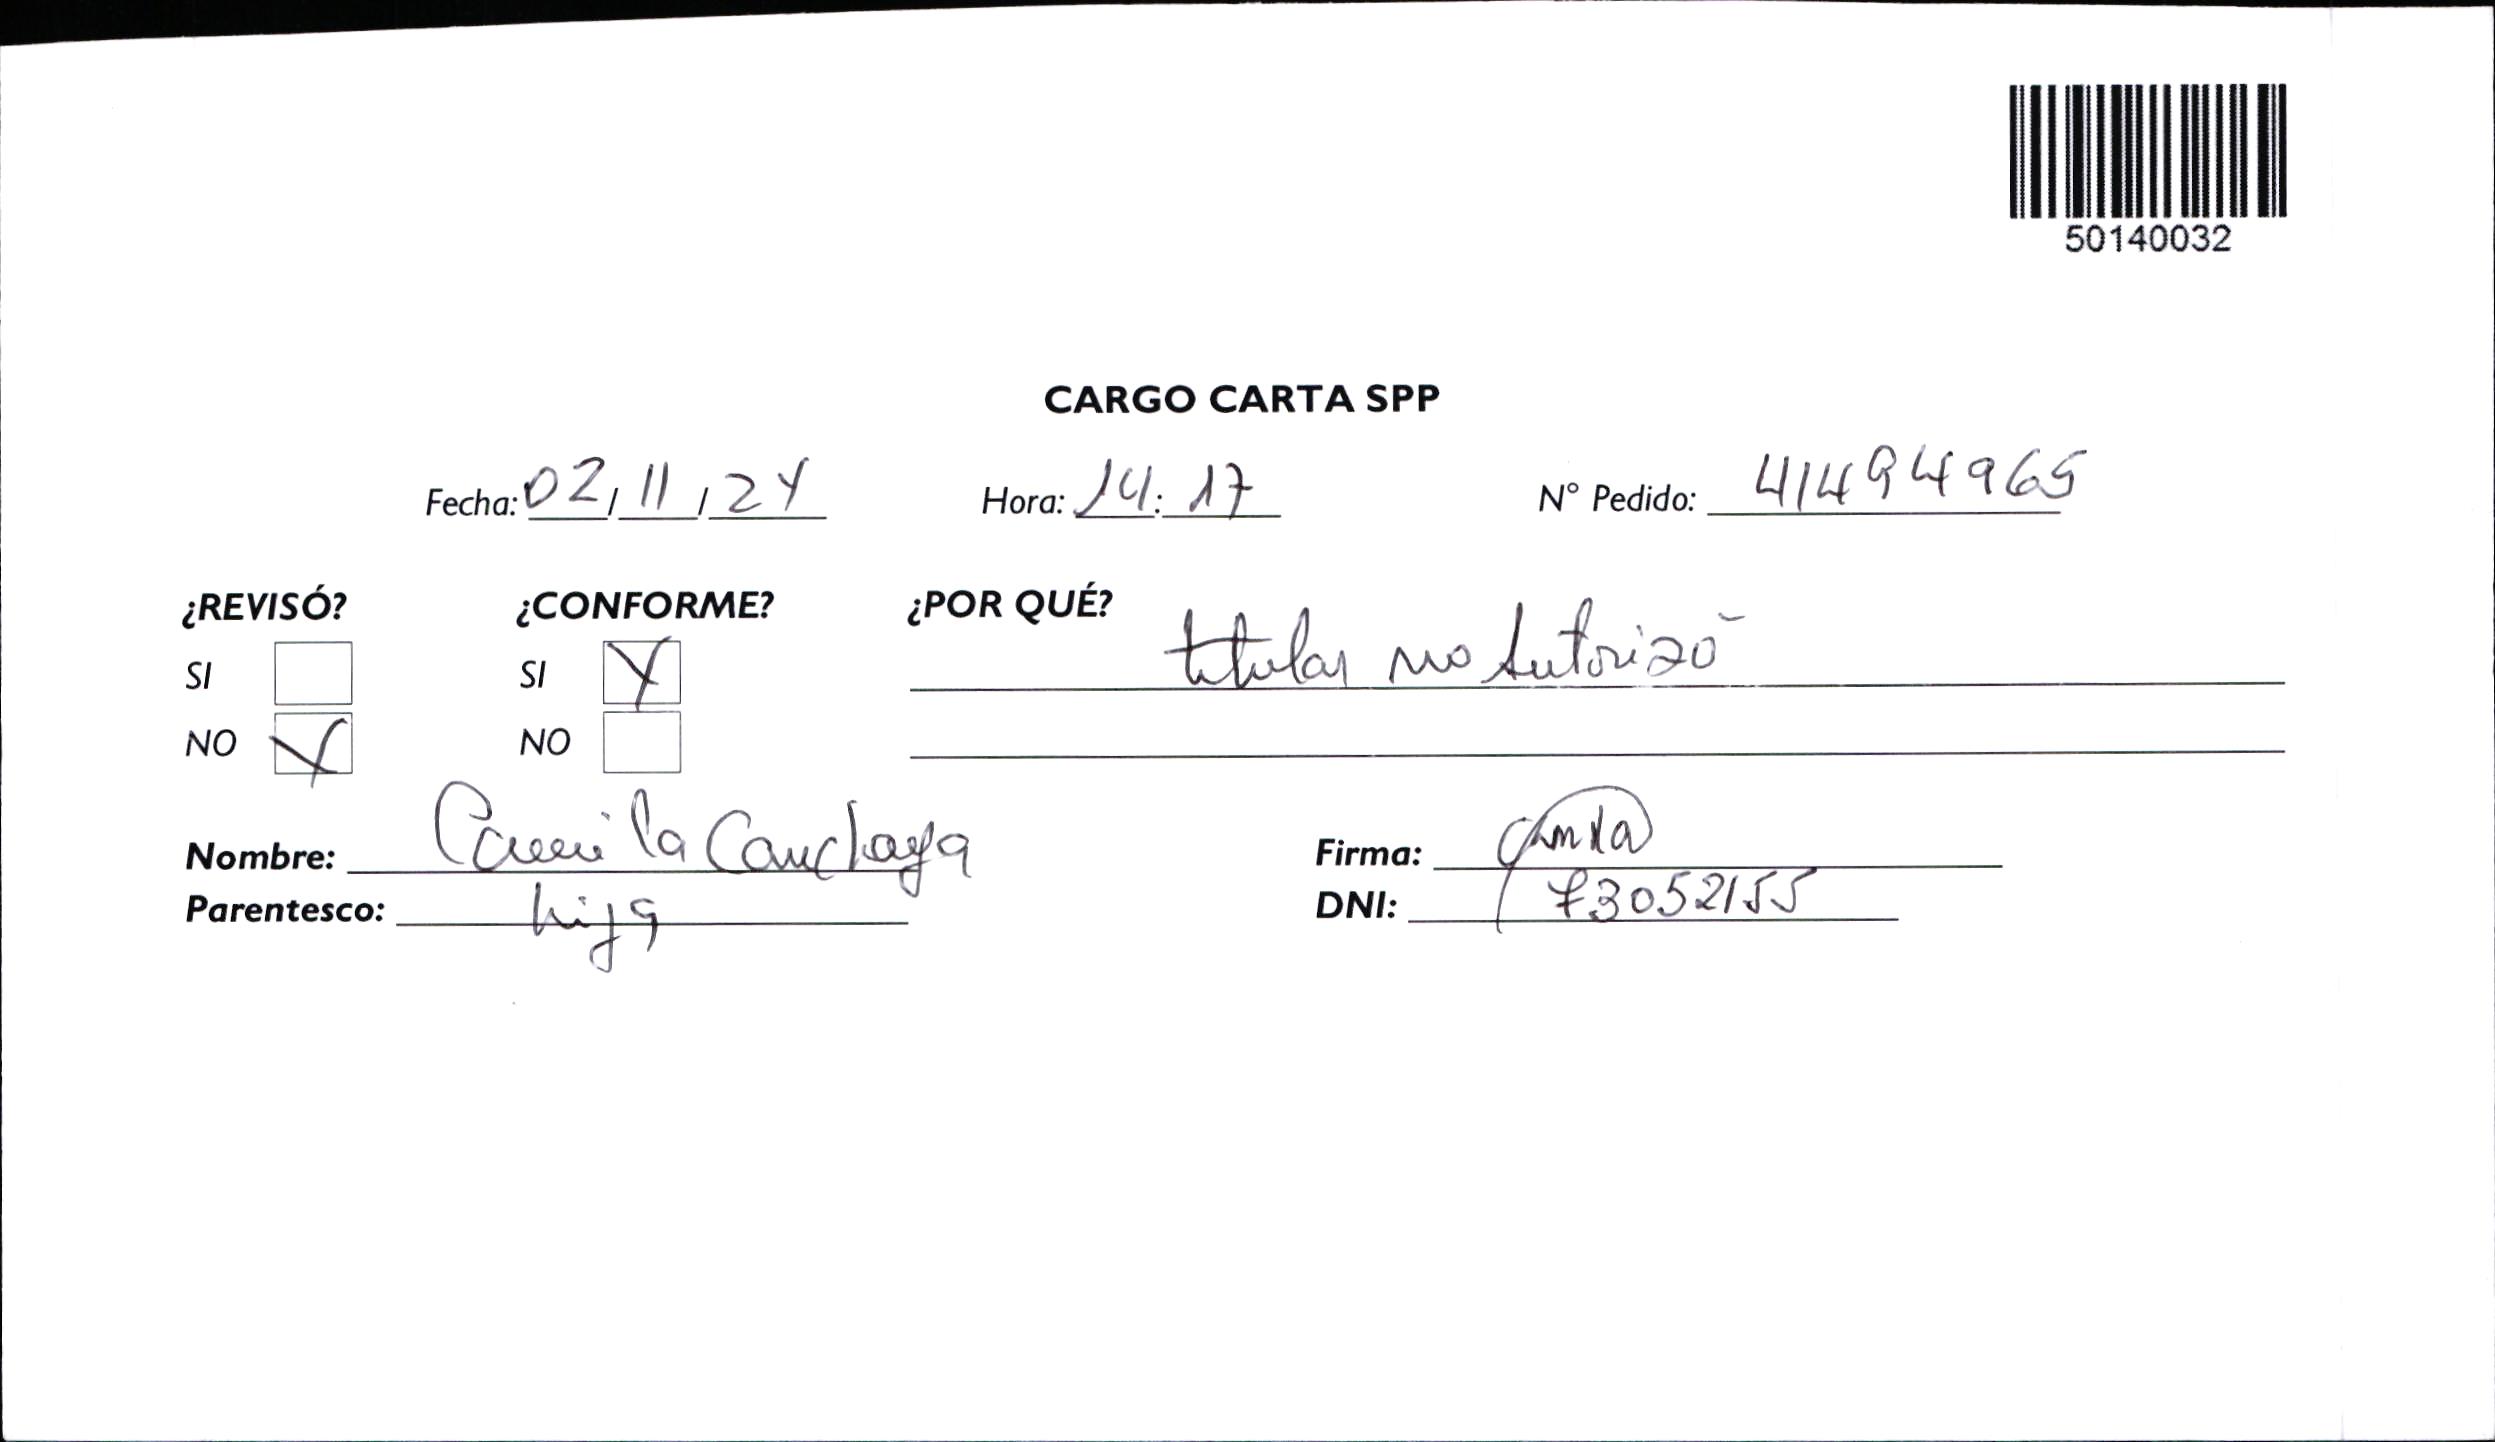 50140032
CARGO CARTA SPP
Fecha: 02/11/24 Hora: 14:17 N° Pedido: 41494965
¿REVISÓ? ¿CONFORME? ¿POR QUÉ?
SI SI titular no autorizó
NO NO
Nombre: Camila Canchaya Firma: Camila
Parentesco: hija DNI: 73052155